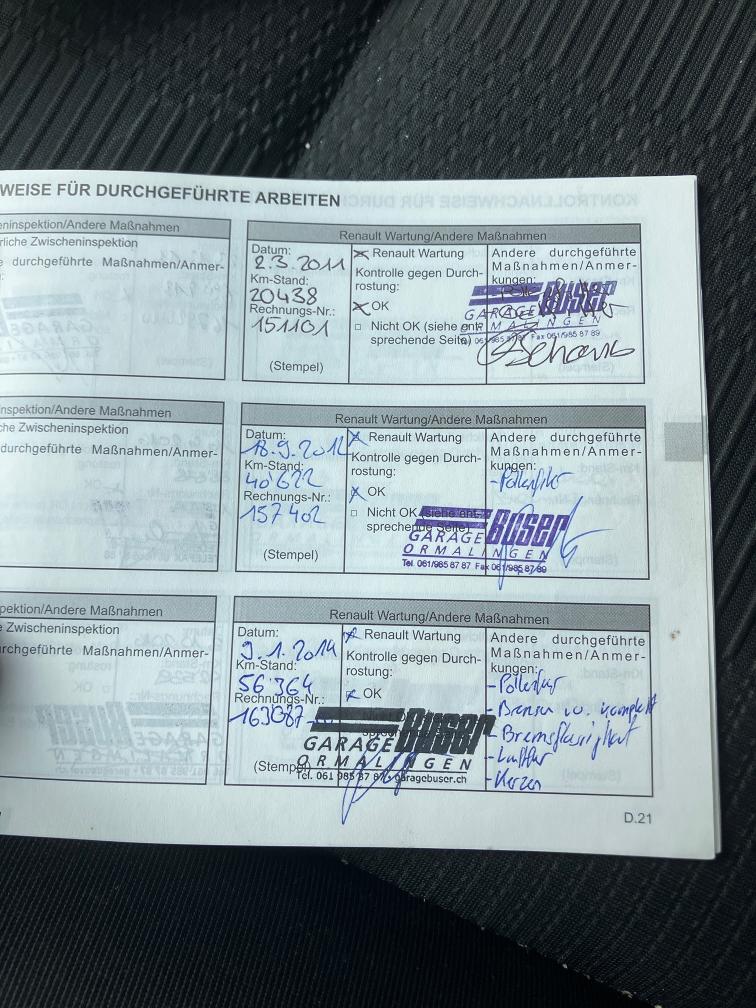 WEISE FÜR DURCHGEFÜHRTE ARBEITEN
eninspektion/Andere Maßnahmen
rliche Zwischeninspektion
durchgeführte Maßnahmen/Anmer-
Renault Wartung/Andere Maßnahmen
Datum:
2.3.2011
Km-Stand:
20438
Rechnungs-Nr.:
151101
(Stempel)
Renault Wartung
Kontrolle gegen Durch-
rostung:
OK
Nicht OK (siehe ent-
sprechende Seite)
Andere durchgeführte
Maßnahmen/Anmer-
kungen:
BÜSER
GARAGE
ORMALINGEN
061/985 87 87 Fax 061/985 87 89
nspektion/Andere Maßnahmen
che Zwischeninspektion
durchgeführte Maßnahmen/Anmer-
Renault Wartung/Andere Maßnahmen
Datum:
18.9.2012
Km-Stand:
40622
Rechnungs-Nr.:
157402
(Stempel)
Renault Wartung
Kontrolle gegen Durch-
rostung:
OK
Nicht OK (siehe ent-
sprechende Seite)
Andere durchgeführte
Maßnahmen/Anmer-
kungen:
- Pollenfilter
BÜSER
GARAGE
ORMALINGEN
Tel. 061/985 87 87 Fax 061/985 87 89
pektion/Andere Maßnahmen
e Zwischeninspektion
rchgeführte Maßnahmen/Anmer-
Renault Wartung/Andere Maßnahmen
Datum:
9.1.2014
Km-Stand:
56'364
Rechnungs-Nr.:
163087
(Stempel)
Renault Wartung
Kontrolle gegen Durch-
rostung:
OK
Andere durchgeführte
Maßnahmen/Anmer-
kungen:
- Pollenfilter
- Bremsen komplett
- Bremsflüssigkeit
- Luftfilter
- Kerzen
BÜSER
GARAGE
ORMALINGEN
Tel. 061 985 87 87 garagebuser.ch
D.21